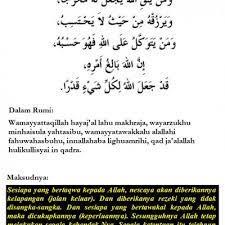 وَيَرْزُقْهُ مِنْ حَيْثُ لَا يَحْتَسِبُ،
وَمَنْ يَتَوَكَّلْ عَلَى اللهِ فَهُوَ حَسْبُهُ،
إِنَّ اللهَ بَالِغُ أَمْرِهِ،
قَدْ جَعَلَ اللهُ لِكُلِّ شَيْءٍ قَدْرًا.
Dalam Rumi:
Wamayyattaqillah hayaj'al lahu makhraja, wayarzukhu
minhaisula yahtasibu, wamayyatawakkalu alallahi
fahuwahasbuhu, innallahaba lighuamrihi, qad ja'allahu
halikullisyai in qadra.
Maksudnya:
Sesiapa yang bertaqwa kepada Allah, nescaya akan diberikannya
kelapangan (jalan keluar). Dan diberikanya rezeki yang tidak
disangka-sangka. Dan sesiapa yang bertawakal kepada Allah,
maka dicukupkannya (keperluannya). Sesungguhnya Allah tetap